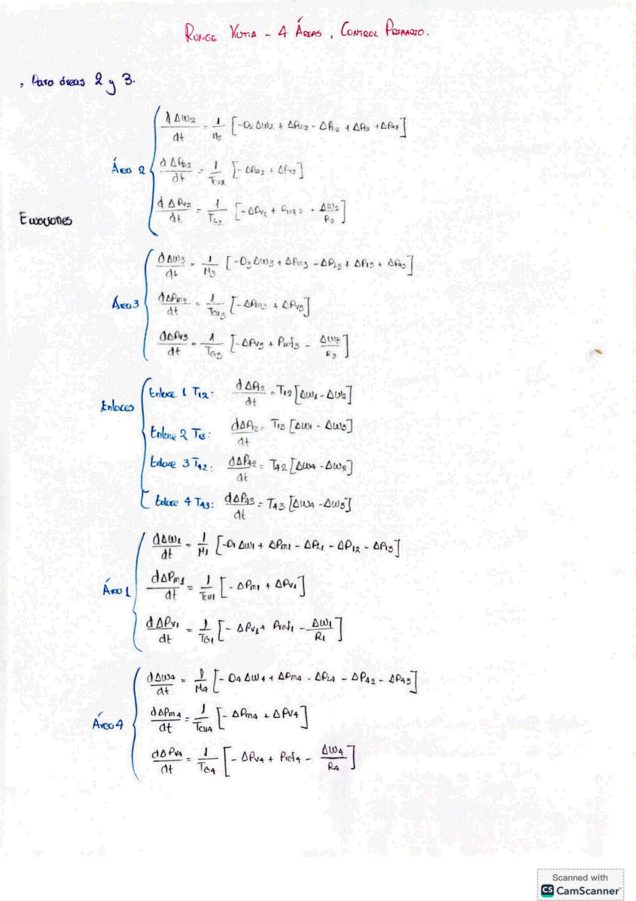 Runge Kutta - 4 Áreas, Control Primario.
, Para áreas 2 y 3.
Ecuaciones
Área 2
dΔω₂/dt = 1/M₂ [-D₂Δω₂ + ΔPm₂ - ΔPL₂ + ΔP₁₂ + ΔP₄₂]
dΔPm₂/dt = 1/TCH₂ [-ΔPm₂ + ΔPv₂]
dΔPv₂/dt = 1/TG₂ [-ΔPv₂ + Pref₂ - Δω₂/R₂]
Área 3
dΔω₃/dt = 1/M₃ [-D₃Δω₃ + ΔPm₃ - ΔPL₃ + ΔP₁₃ + ΔP₄₃]
= 1/TCH₃ [-ΔPm₃ + ΔPv₃]
dΔPv₃/dt = 1/TG₃ [-ΔPv₃ + Pref₃ -
Enlaces
Enlace 1 T₁₂: dΔP₁₂/dt = T₁₂ [Δω₁ - Δω₂]
Enlace 2 T₁₃: = T₁₃ [Δω₁ - Δω₃]
Enlace 3 T₄₂: dΔP₄₂/dt = T₄₂ [Δω₄ - Δω₂]
Enlace 4 T₄₃: dΔP₄₃/dt = T₄₃ [Δω₄ - Δω₃]
Área 1
dΔω₁/dt = 1/M₁ [-D₁Δω₁ + ΔPm₁ - ΔPL₁ - ΔP₁₂ - ΔP₁₃]
dΔPm₁/dt = 1/TCH₁ [-ΔPm₁ + ΔPv₁]
dΔPv₁/dt = 1/TG₁ [-ΔPv₁ + Pref₁ - Δω₁/R₁]
Área 4
dΔω₄/dt = 1/M₄ [-D₄Δω₄ + ΔPm₄ - ΔPL₄ - ΔP₄₂ - ΔP₄₃]
dΔPm₄/dt = 1/TCH₄ [-ΔPm₄ + ΔPv₄]
dΔPv₄/dt = 1/TG₄ [-ΔPv₄ + Pref₄ - Δω₄/R₄]
Scanned with
CS CamScanner